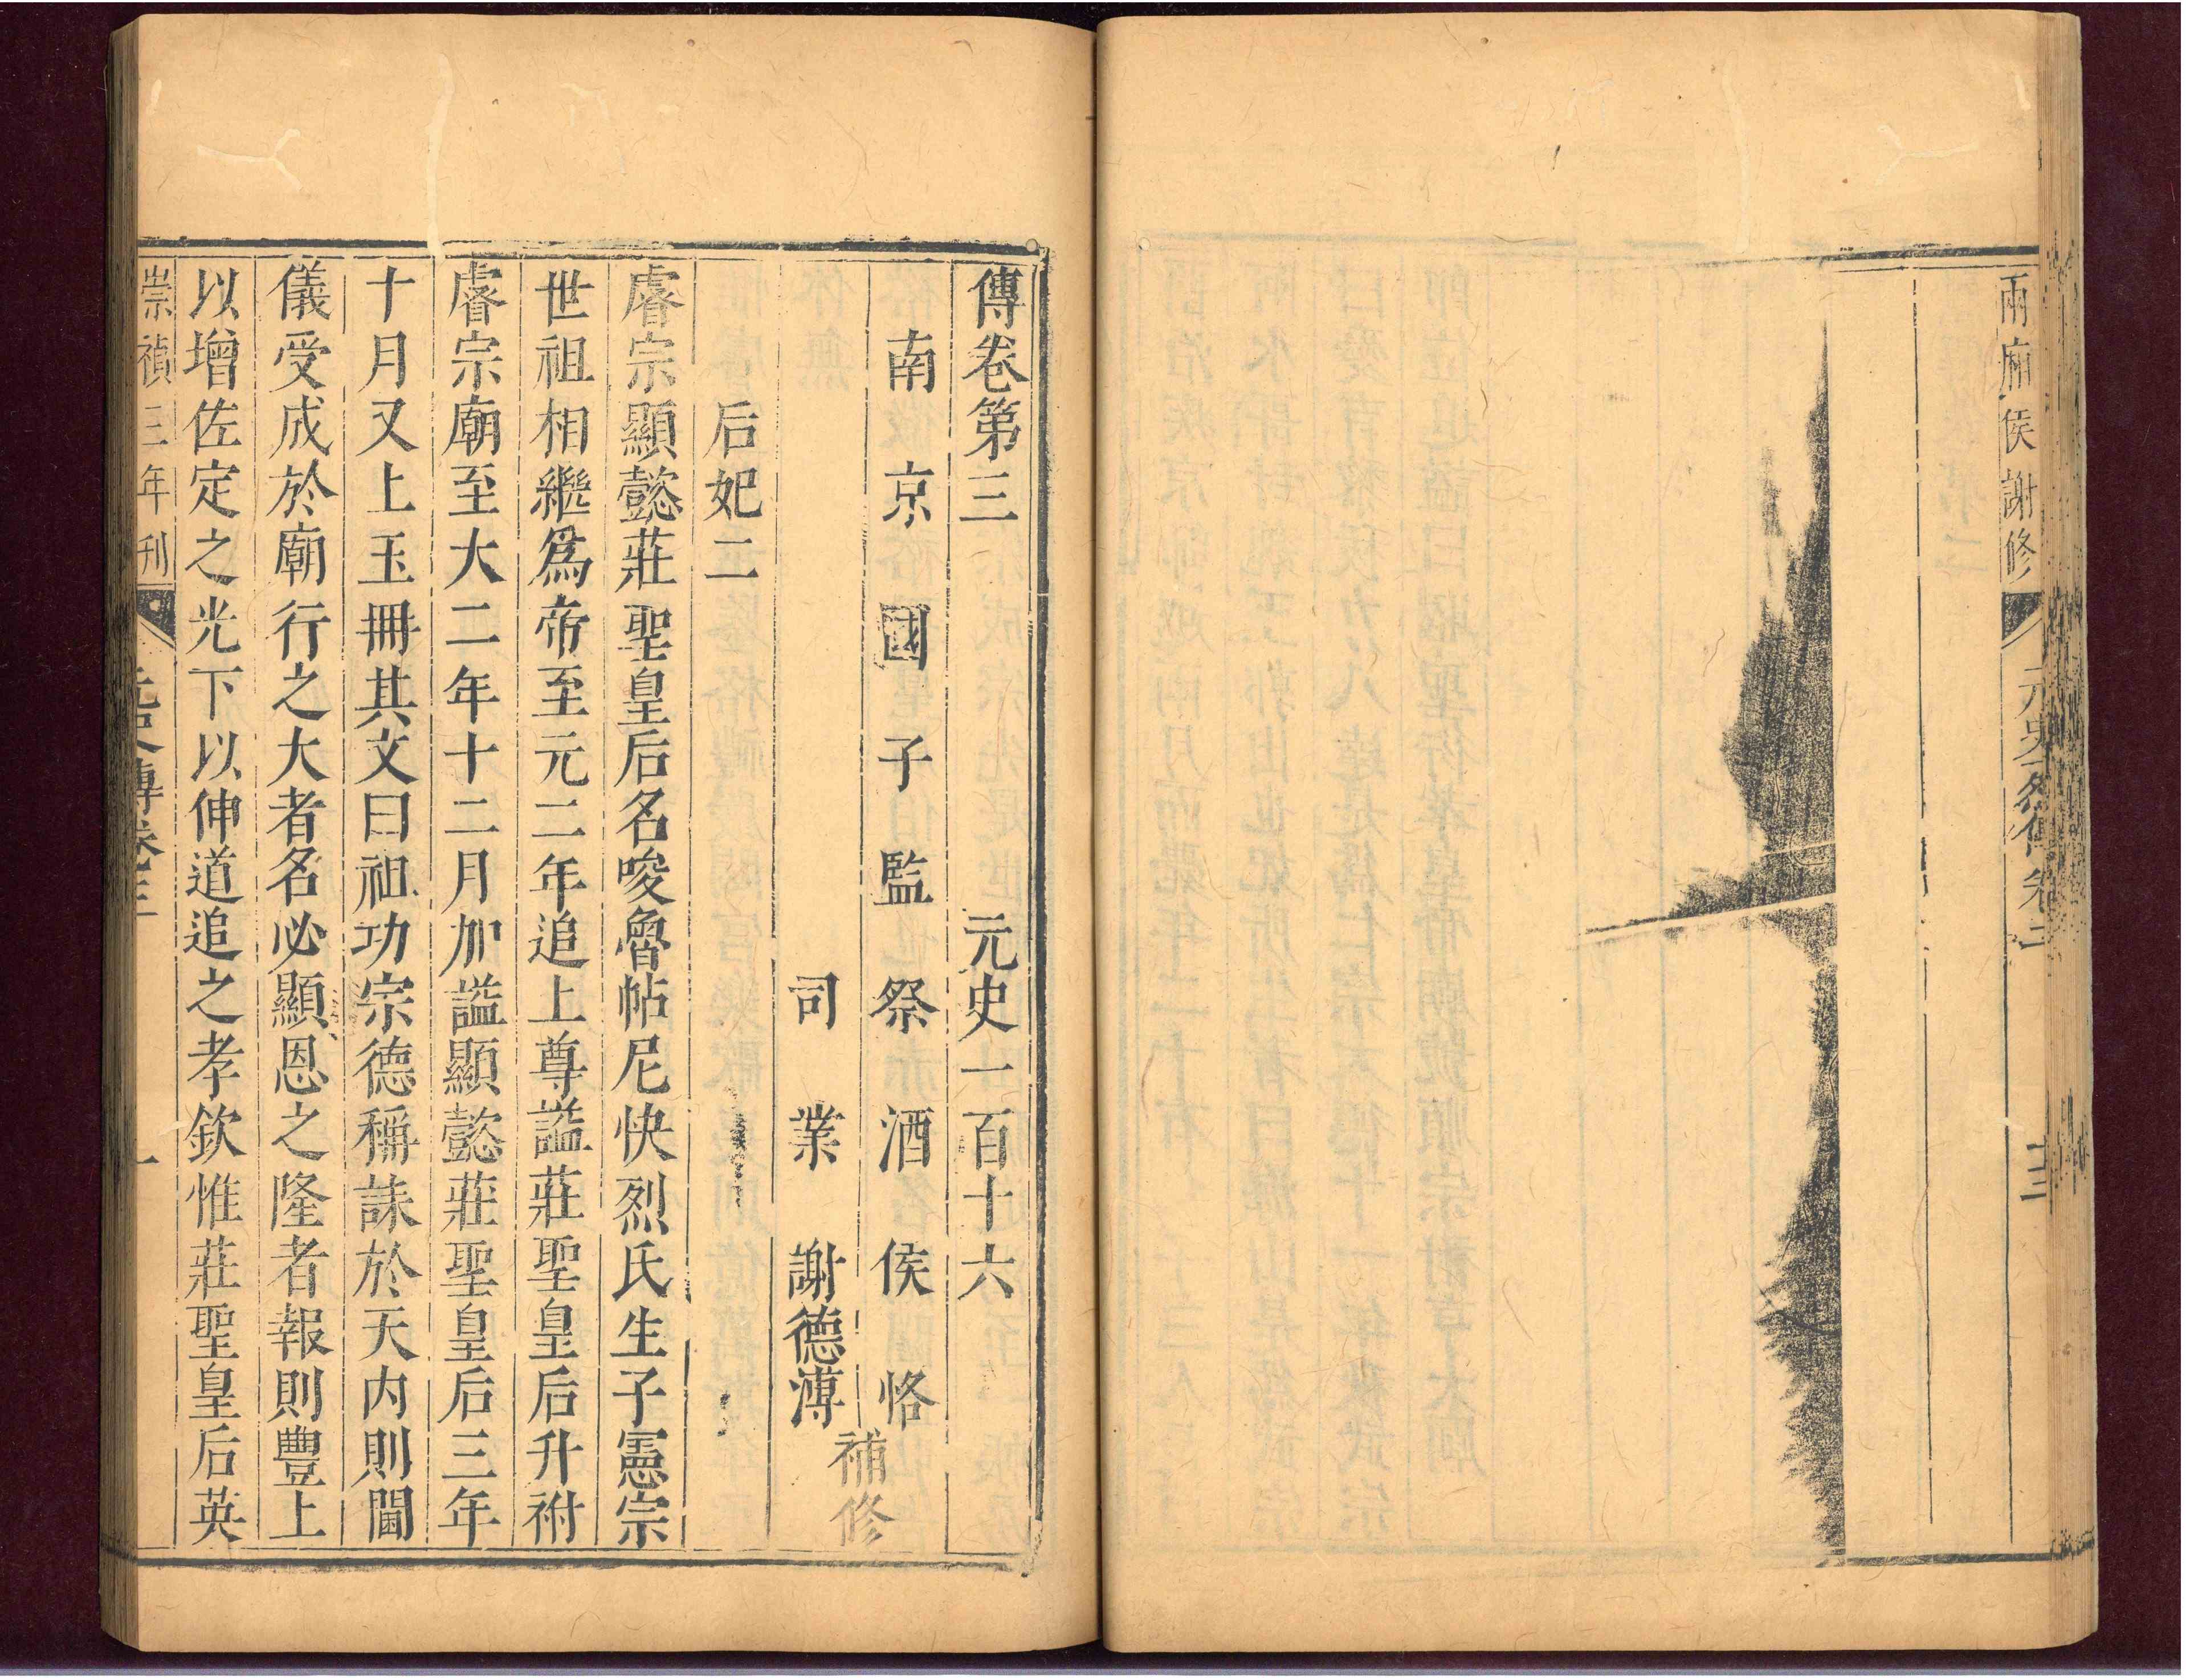 兩廂侯謝修
元史列傳卷二
十三
傳卷第三 元史一百十六
南京國子監祭酒侯恪
司業謝德溥
補修
后妃二
睿宗顯懿莊聖皇后名唆魯帖尼怯烈氏生子憲宗
世祖相繼爲帝至元二年追上尊謚莊聖皇后升祔
睿宗廟至大二年十二月加謚顯懿莊聖皇后三年
十月又上玉冊其文曰祖功宗德稱誄於天内則閫
儀受成於廟行之大者名必顯恩之隆者報則豐上
以增佐定之光下以伸道追之孝欽惟莊聖皇后英
崇禎三年刊
元史傳卷三
一